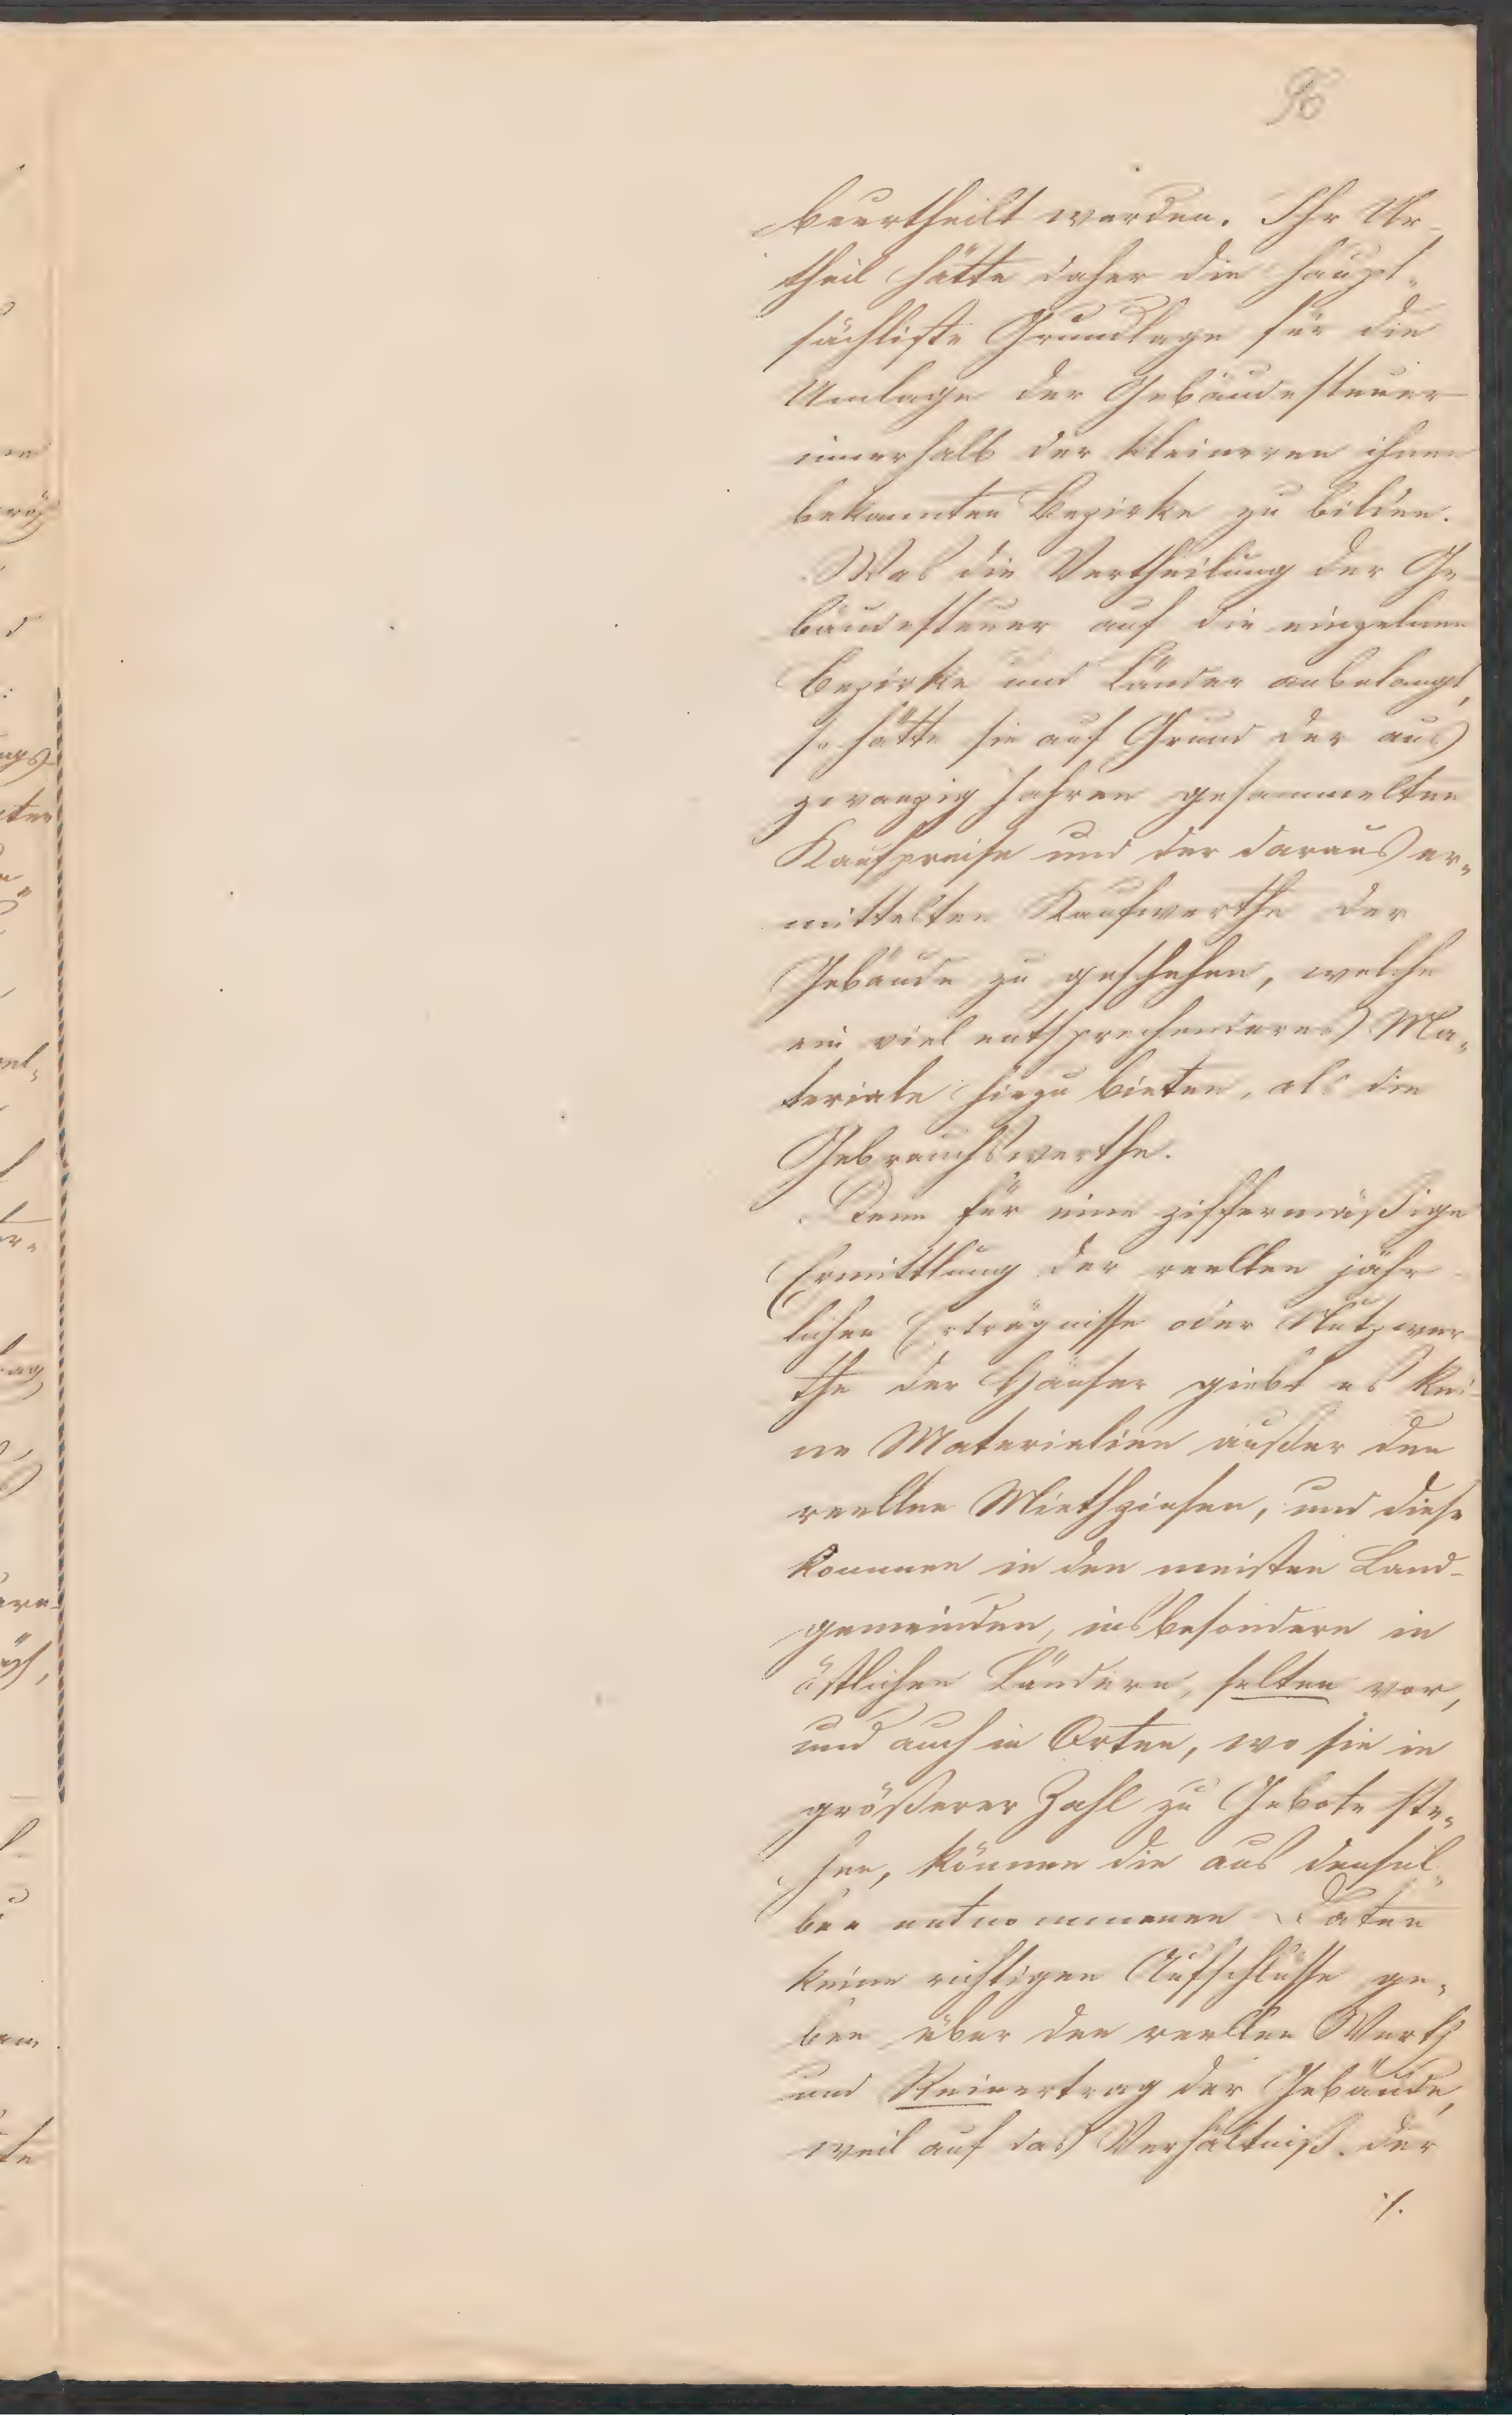 96
beurtheilt werden. Ihr Ur-
theil hätte daher die haupt-
sächlichste Grundlage für die
Umlage der Gebäudesteuer
innerhalb der kleineren ihnen
bekannten Bezirke zu bilden.
Was die Vertheilung der Ge-
bäudesteuer auf die einzelnen
Bezirke und Länder anbelangt,
so hätte sie auf Grund der aus
zwanzig Jahren gesammelten
Kaufpreise und der daraus er-
mittelten Kaufwerthe der
Gebäude zu geschehen, welche
ein viel entsprechenderes Ma-
teriale hiezu bieten, als die
Gebrauchswerthe.
Denn für eine ziffermäßige
Ermittlung der reellen jähr-
lichen Erträgnisse oder Nutzwer-
the der Häuser giebt es kei-
ne Materialien außer den
reellen Miethzinsen, und diese
kommen in den meisten Land-
gemeinden, insbesondere in
östlichen Ländern, selten vor,
und auch in Orten, wo sie in
größerer Zahl zu Gebote ste-
hen, können die aus densel-
ben entnommenen Daten
keine richtigen Aufschlüsse ge-
ben über den reellen Werth
und Reinertrag der Gebäude,
weil auf das Verhältniß der
./.